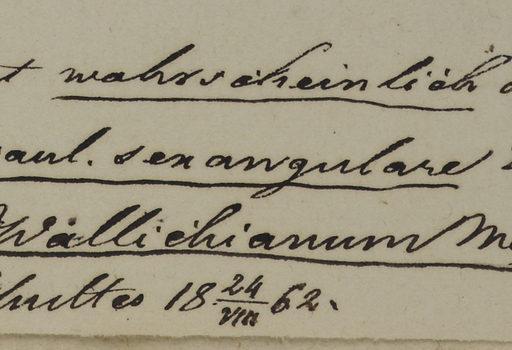 t wahrscheinlich
caul. sexangulare
Wallichianum
Schultes 18 24/VIII 62.